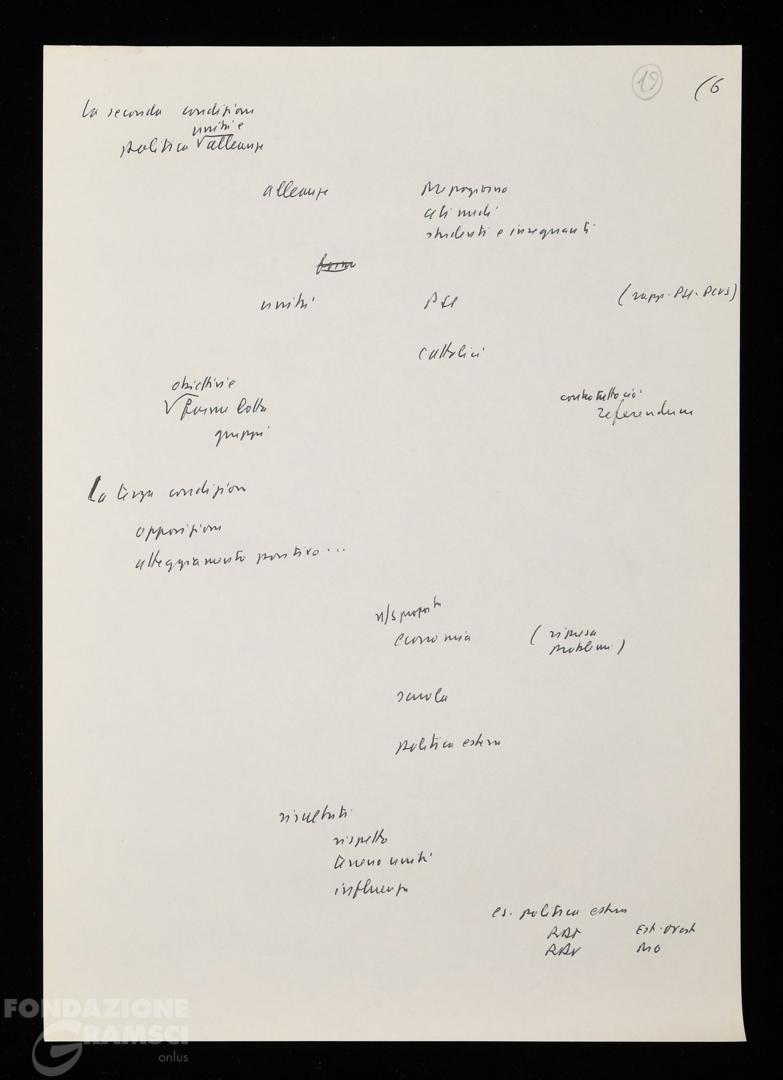 19 (6
La seconda condizione
unità e
politica √ alleanze
alleanze Mezzogiorno
ceti medi
studenti e insegnanti
unità PSI (rapp. PSI-PCUS)
Cattolici
obiettivi e
√ forme lotta
referendum
gruppi
La terza condizione
opposizione
atteggiamento positivo...
n/s proposte
economia (ripresa
problemi)
scuola
politica estera
risultati
rispetto
terreno unità
influenza
es. politica estera
RDT Est-Ovest
RDV MO
FONDAZIONE
GRAMSCI
onlus